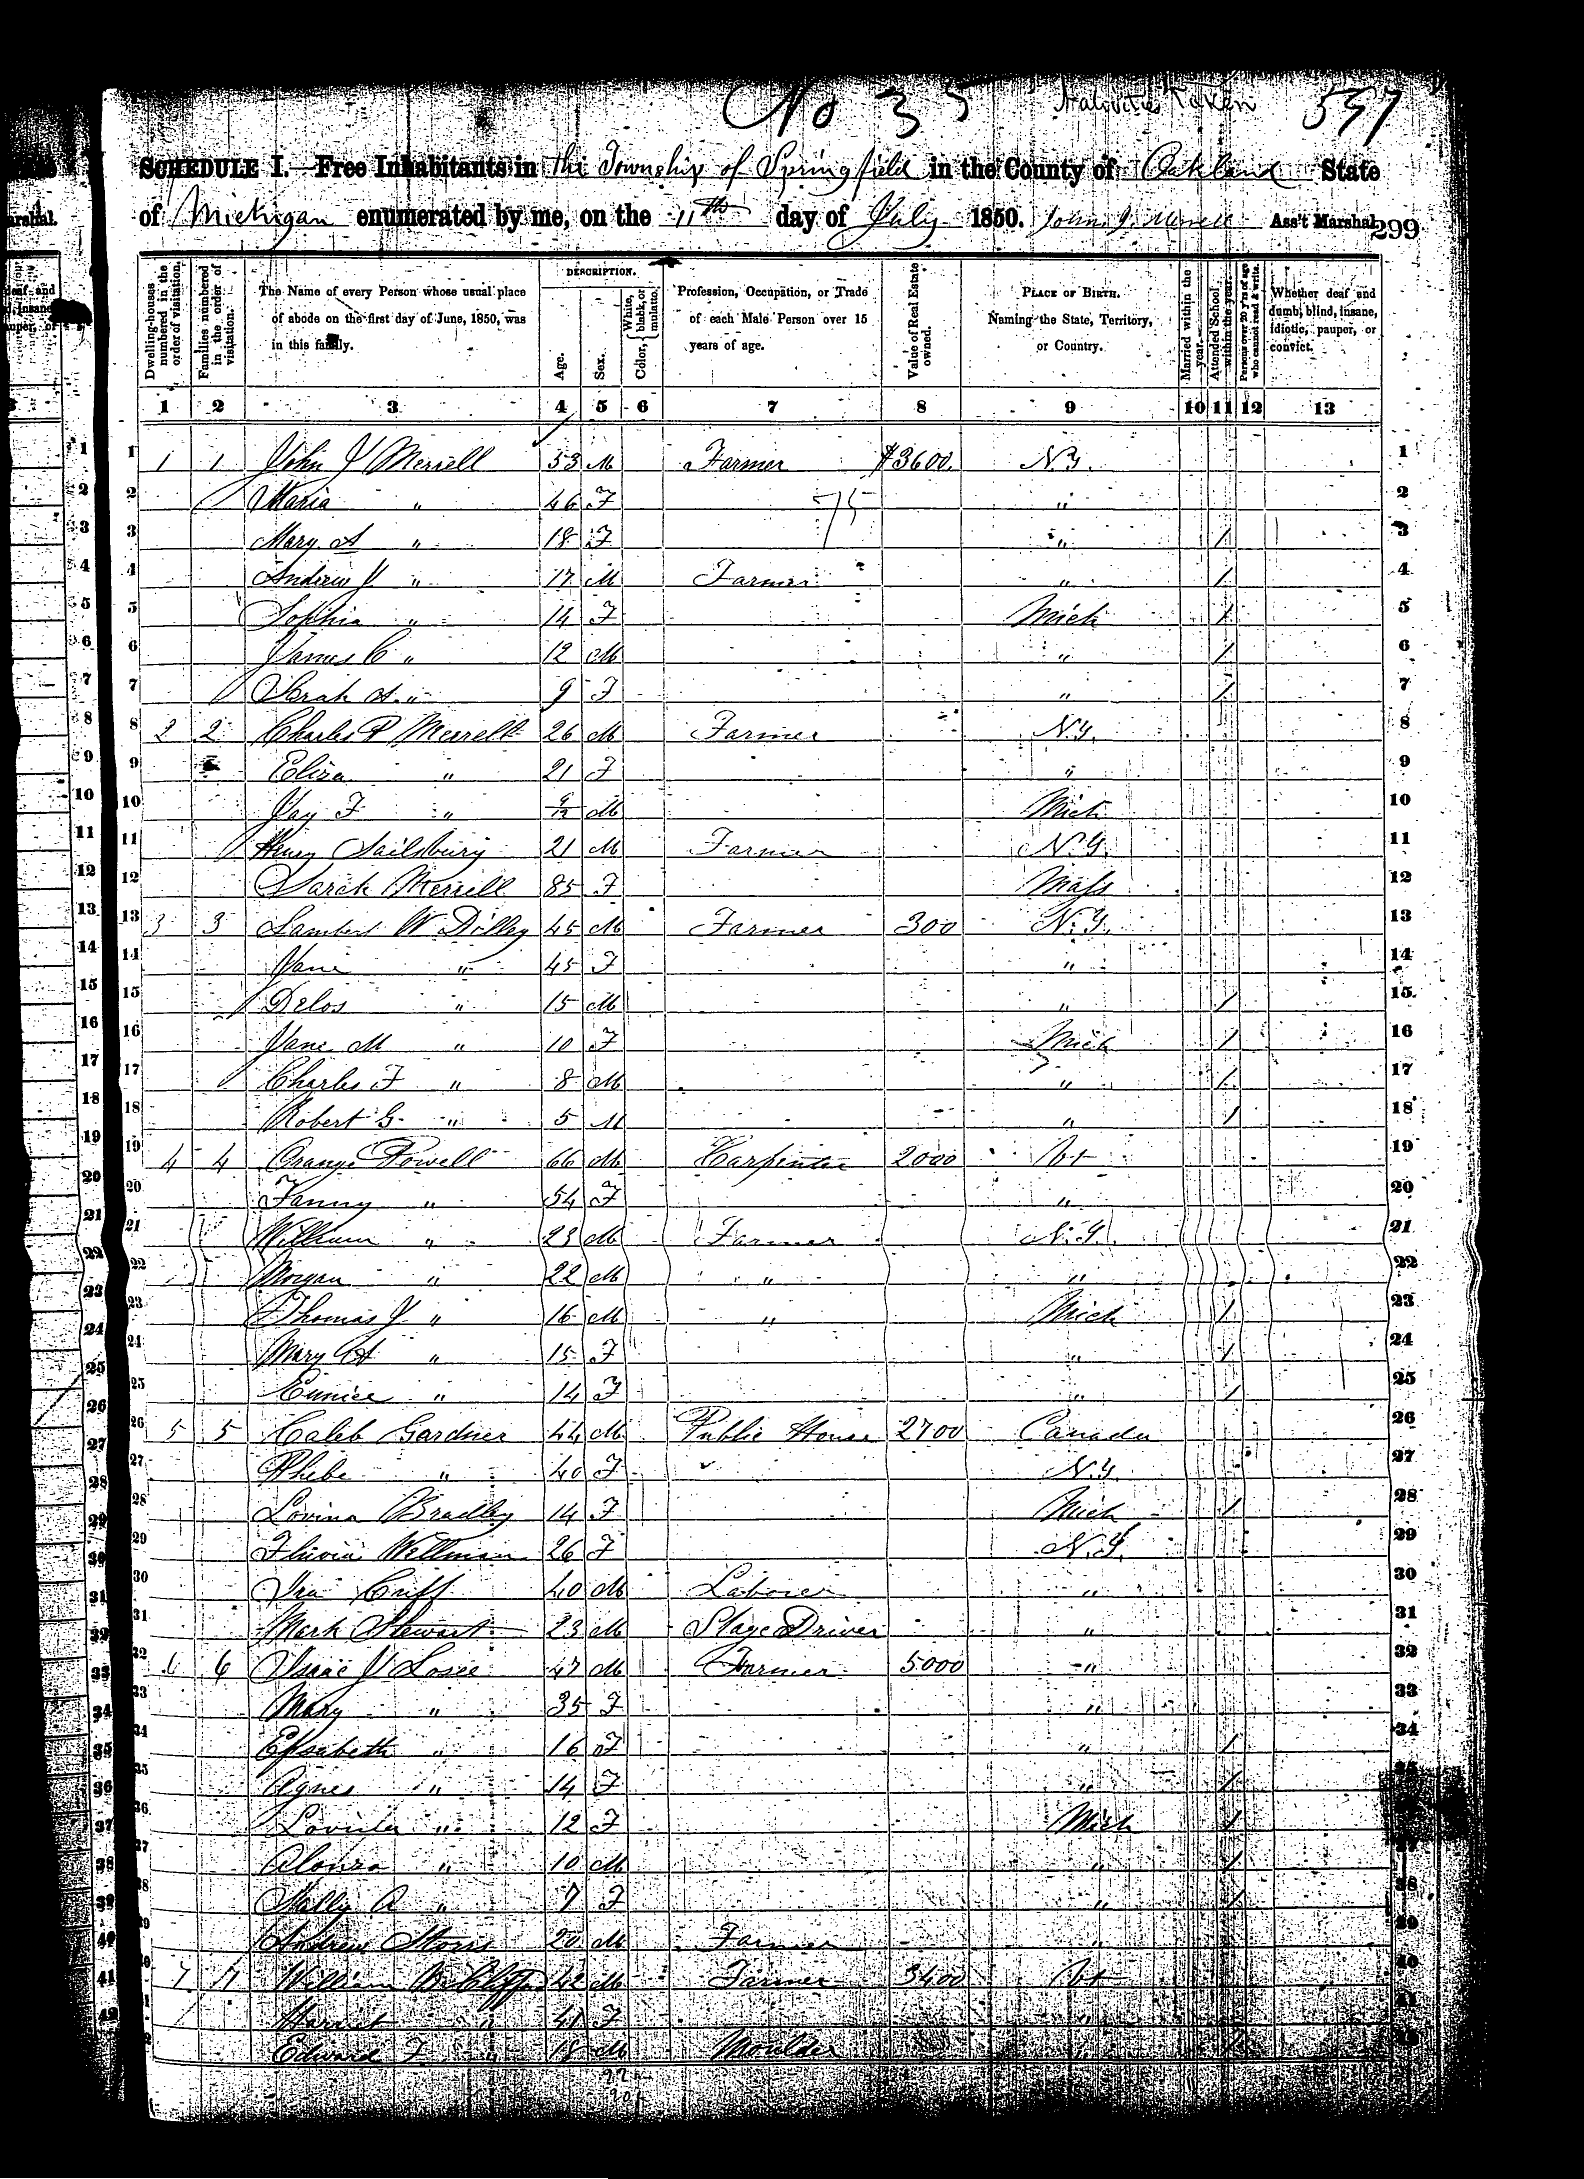 No 35 Nativities Taken 597
SCHEDULE I.—Free Inhabitants in the Township of Springfield in the County of Oakland State
of Michigan enumerated by me, on the 11th day of July 1850. John J. Merrell Ass't Marshal. 299
Dwelling-houses numbered in the order of visitation. Families numbered in the order of visitation. The Name of every Person whose usual place of abode on the first day of June, 1850, was in this family. DESCRIPTION. Age. Sex. Color, White, black, or mulatto. Profession, Occupation, or Trade of each Male Person over 15 years of age. Value of Real Estate owned. PLACE OF BIRTH. Naming the State, Territory, or Country. Married within the year. Attended School within the year. Persons over 20 y'rs of age who cannot read & write. Whether deaf and dumb, blind, insane, idiotic, pauper, or convict.
1 2 3 4 5 6 7 8 9 10 11 12 13
1 1 1 John J Merrell 53 M Farmer $3600. N.Y. 1
2 Maria " 46 F 75 " 2
3 Mary A " 18 F " 1 3
4 Andrew J " 17 M Farmer " 1 4
5 Sophia " 14 F Mich 1 5
6 James C " 12 M " 1 6
7 Sarah A. " 9 F " 1 7
8 2 2 Charles P Merrell 26 M Farmer N.Y. 8
9 Eliza " 21 F " 9
10 Jay F " 9/12 M Mich 10
11 Henry Sailsbury 21 M Farmer N.Y. 11
12 Sarah Merrell 85 F Mass 12
13 3 3 Lambert W Dilley 45 M Farmer 300 N.Y. 13
14 Jane " 45 F " 14
15 Delos " 15 M " 1 15
16 Jane M " 10 F Mich 1 16
17 Charles F " 8 M " 1 17
18 Robert G. " 5 M " 1 18
19 4 4 Orange Powell 66 M Carpenter 2000 Vt 19
20 Fanny " 54 F " 20
21 William " 23 M Farmer N.Y. 21
22 Morgan " 22 M " " 22
23 Thomas J " 16 M " Mich 1 23
24 Mary A " 15 F " 1 24
25 Eunice " 14 F " 1 25
26 5 5 Caleb Gardner 44 M Public House 2700 Canada 26
27 Phebe " 40 F N.Y 27
28 Lovina Bradley 14 F Mich 1 28
29 Wellman 26 F N.Y. 29
30 Ira Cuff 40 M Laborer " 30
31 Mark Stewart 23 M Stage Driver " 31
32 6 6 Isaac J Losee 47 M Farmer 5000 " 32
33 Mary " 35 F " 33
34 Elisabeth " 16 F " 1 34
35 Agnes " 14 F " 1 35
36 " 12 F Mich 1
37 Alonzo " 10 M " 1 37
38 Sally A " 7 F " 1 38
39 Andrew Storrs 20 M Farmer " 39
40 7 7 William B 42 M Farmer 3400 Vt 40
41 Harriet " 41 F " 41
42 Edward F " 18 M Moulder " 1